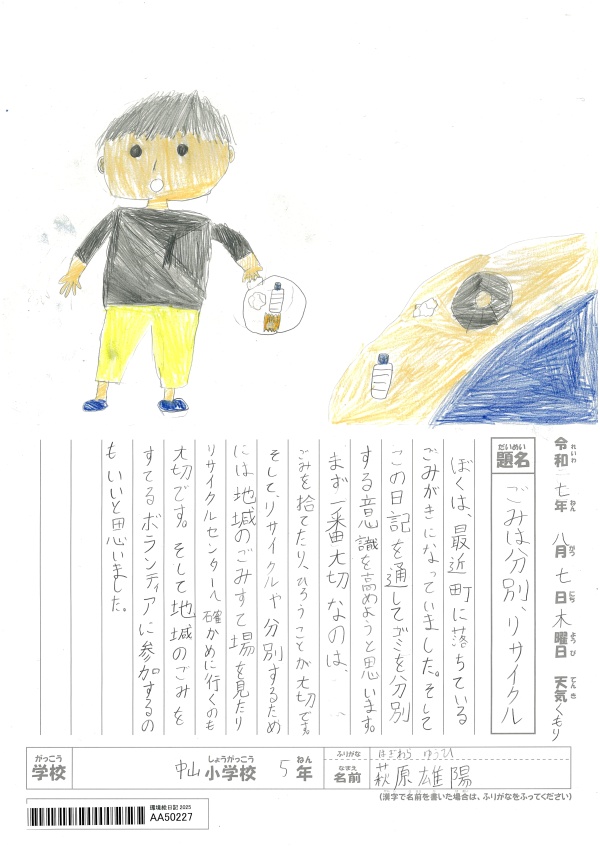 令和 七年 八月 七日 木曜日 天気 くもり
れいわ ねん がつ にち ようび てんき
だいめい
題名
ごみは分別、リサイクル
ぼくは、最近町に落ちている
ごみがきになっていました。そして
この日記を通してゴミを分別
する意識を高めようと思います。
まず一番大切なのは、
ごみを捨てたり、ひろうことが大切です。
そして、リサイクルや分別するため
には地域のごみすて場を見たり
リサイクルセンターへ確かめに行くのも
大切です。そして地域のごみを
すてるボランティアに参加するの
もいいと思いました。
がっこう
学校
しょうがっこう ねん
中山小学校 5年
ふりがな はぎわら ゆうひ
なまえ
名前 萩原雄陽
(漢字で名前を書いた場合は、ふりがなをふってください)
環境絵日記 2025
AA50227